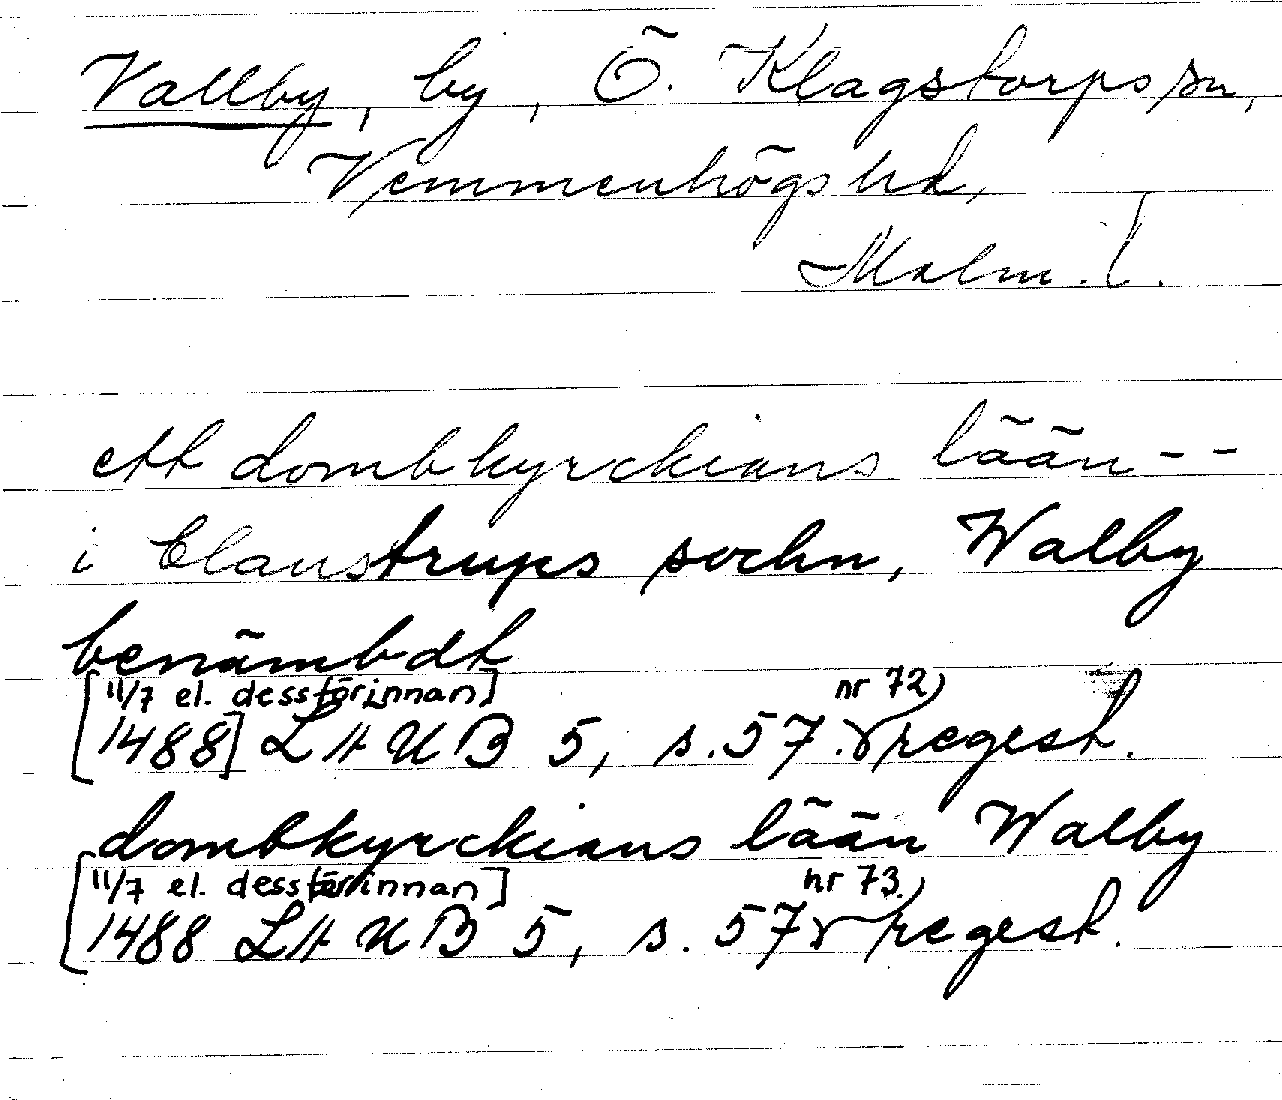 Vallby, by, Ö. Klagstorps sn,
Vemmenhögs hd,
Malm. l.
ett dombkyrckians lään --
i Claustrups sochn, Walby
benämbdt
[11/7 el. dessförinnan]
1488] LÄUB 5, s. 57. nr 72, regest.
dombkyrckians lään Walby
[11/7 el. dessförinnan]
1488 LÄUB 5, s. 57 nr 73, regest.